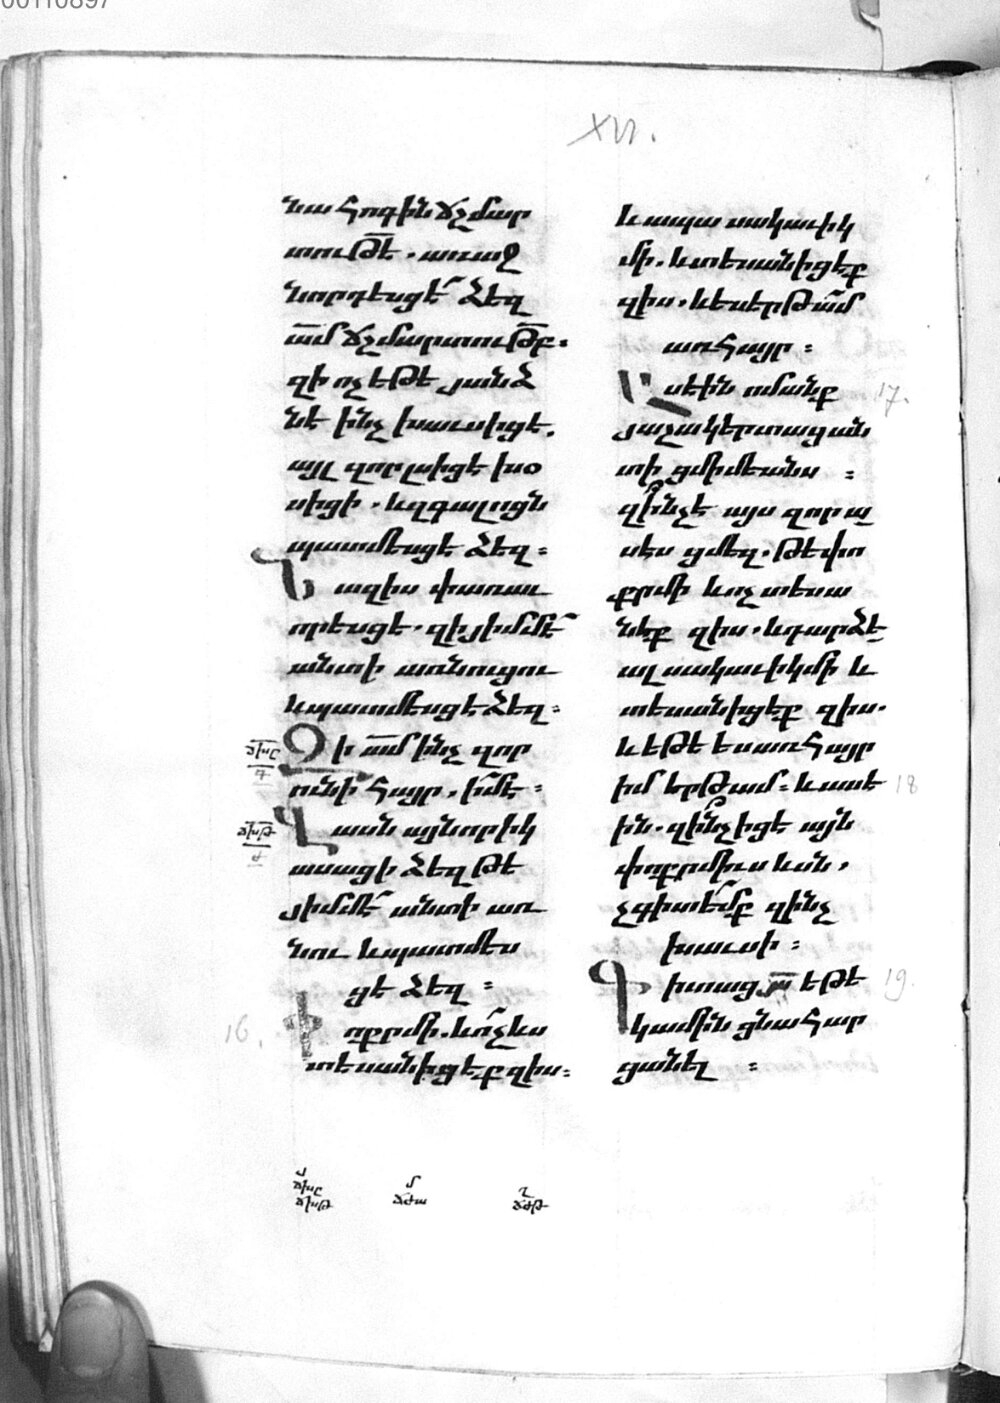 00110897
XVI.
նա հոգին ճշմար
տութե՟ . առաջ
նորդեսցե՛ ձեզ
ա՟մ ճշմարտութբ՟ :
զի ոչ եթէ յանձ
նէ ինչ խաւսիցէ .
այլ զոր լսիցէ խօ
սիցի . և զգալոցն
պատմեսցէ ձեզ :
Նա զիս փառաւ
որեսցէ . զի յիմմէ՛
անտի առնուցու
և պատմեսցէ ձեզ :
ճխը
դ
Զի ա՟մ ինչ զոր
ունի հայր , իմ է :
ճխթ
Վասն այնորիկ
ասացի ձեզ թէ
յիմմէ՛ անտի առ
նու և պատմես
ցէ ձեզ :
16.
Փոքրմի . և ո՛չ ևս
տեսանիցէք զիս :
և ապա սակաւիկ
մի . և տեսանիցէք
զիս . և ես երթամ
առ հայր :
17.
Ասէին ոմանք
յաշակերտաց ան
տի ցմիմեանս :
զի՞նչ է այս զոր ա
սէս ցմեզ . թե փո
քրմի և ոչ տեսա
նէք զիս . և դարձե
ալ սակաւիկմի և
տեսանիցէք զիս .
և եթե ես առ հայր
18
իմ երթամ : և ասէ
ին . զի՞նչ իցէ այն
փոքրմիւս ևսն ,
չգիտե՛մք զինչ
խաւսի :
19.
Գիտաց յս՟ եթե
կամին ցնա հար
ցանել :
յ
ճխը
ճխթ
մ
ճժա
ղ
ճժթ